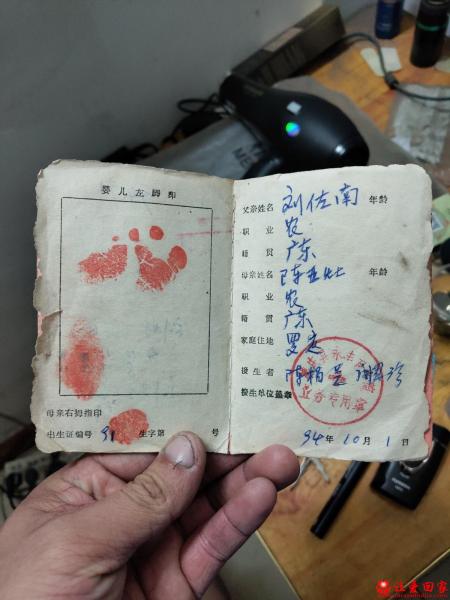 婴儿左脚印
母亲右拇指印
出生证编号 91 生字第 号
父亲姓名 刘佐南 年龄
职业 农
籍贯 广东
母亲姓名 年龄
职业 农
籍贯 广东
家庭住地 罗定
接生者
接生单位盖章
业务专用章
94年10月1日
让爱回家